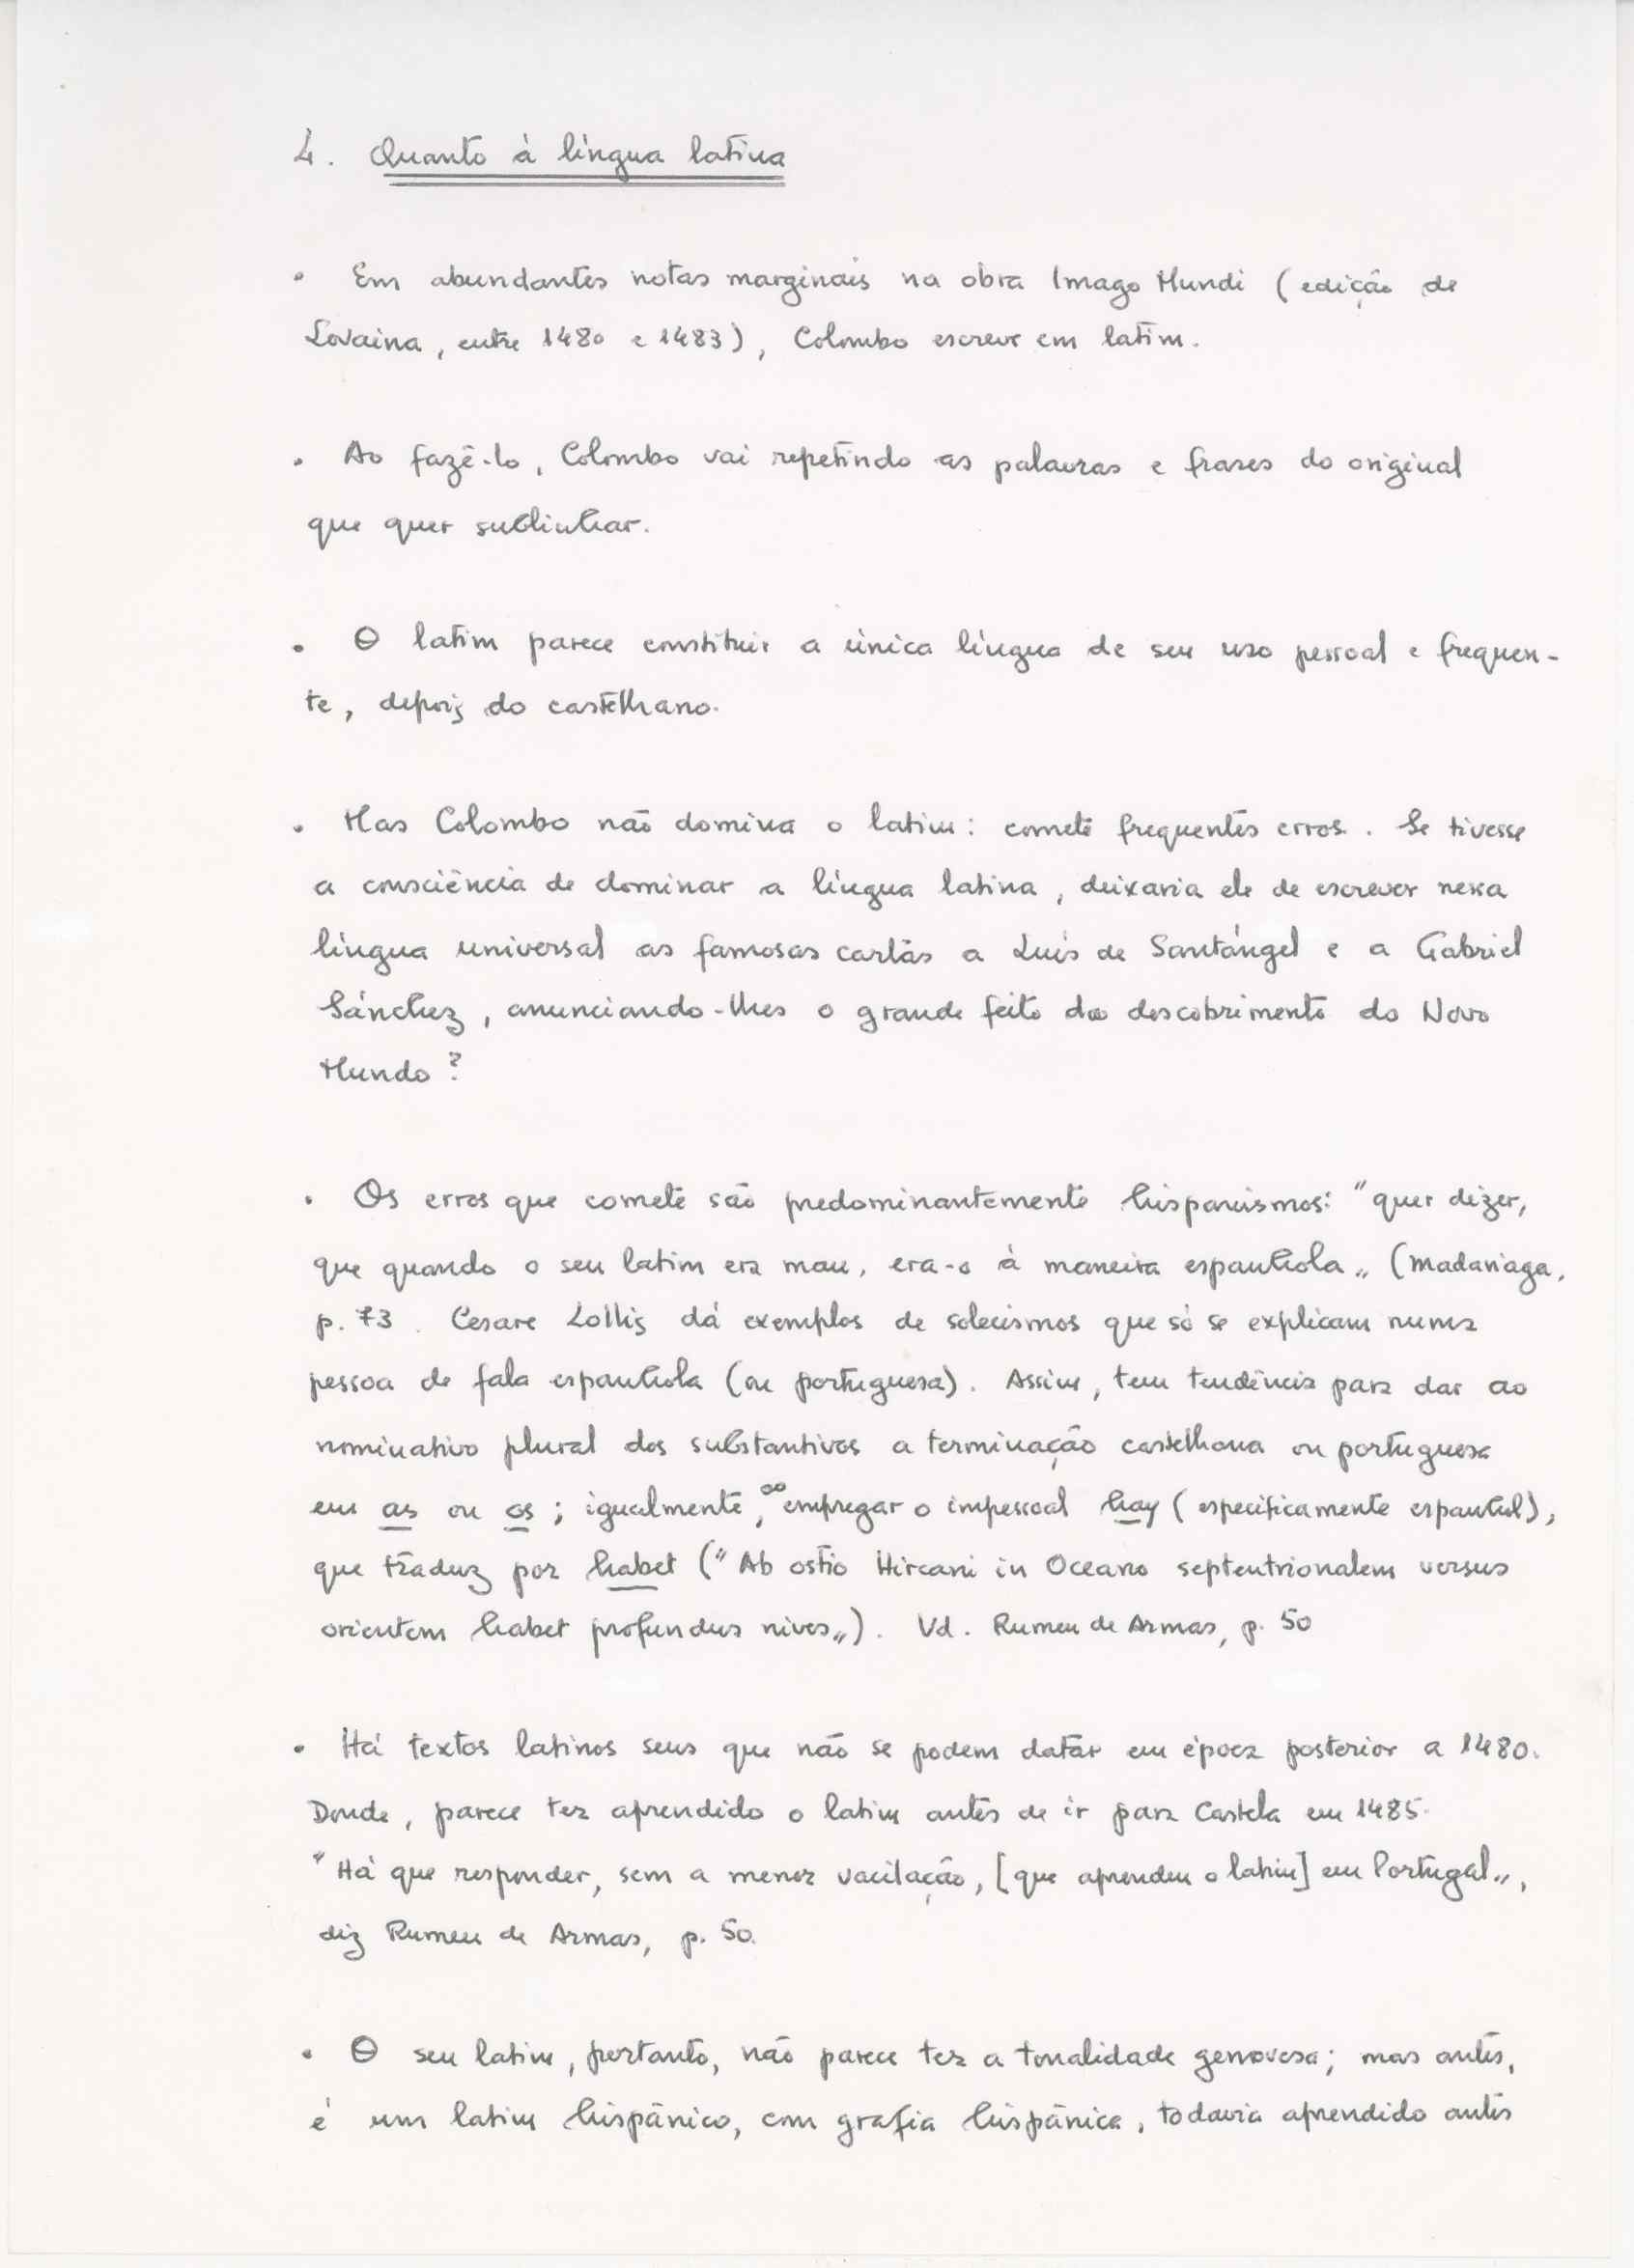 4. Quanto à língua latina
• Em abundantes notas marginais na obra Imago Mundi (edição de
Lovaina, entre 1480 e 1483), Colombo escreve em latim.
• Ao fazê-lo, Colombo vai repetindo as palavras e frases do original
que quer sublinhar.
• O latim parece constituir a única língua de seu uso pessoal e frequen-
te, depois do castelhano.
• Mas Colombo não domina o latim: comete frequentes erros. Se tivesse
a consciência de dominar a língua latina, deixaria ele de escrever nessa
língua universal as famosas cartas a Luís de Santángel e a Gabriel
Sánchez, anunciando-lhes o grande feito do descobrimento do Novo
Mundo?
• Os erros que comete são predominantemente hispanismos: "quer dizer,
que quando o seu latim era mau, era-o à maneira espanhola„ (Madariaga,
p. 73. Cesare Lollis dá exemplos de solecismos que só se explicam numa
pessoa de fala espanhola (ou portuguesa). Assim, tem tendência para dar ao
nominativo plural dos substantivos a terminação castelhana ou portuguesa
em as ou os; igualmente, ao empregar o impessoal hay (especificamente espanhol),
que traduz por habet ("Ab ostio Hircani in Oceano septentrionalem versus
orientem habet profundus nives„). Vd. Rumeu de Armas, p. 50
• Há textos latinos seus que não se podem datar em época posterior a 1480.
Donde, parece ter aprendido o latim antes de ir para Castela em 1485.
"Há que responder, sem a menor vacilação, [que aprendeu o latim] em Portugal„,
diz Rumeu de Armas, p. 50.
• O seu latim, portanto, não parece ter a tonalidade genovesa; mas antes,
é um latim hispânico, com grafia hispânica, todavia aprendido antes